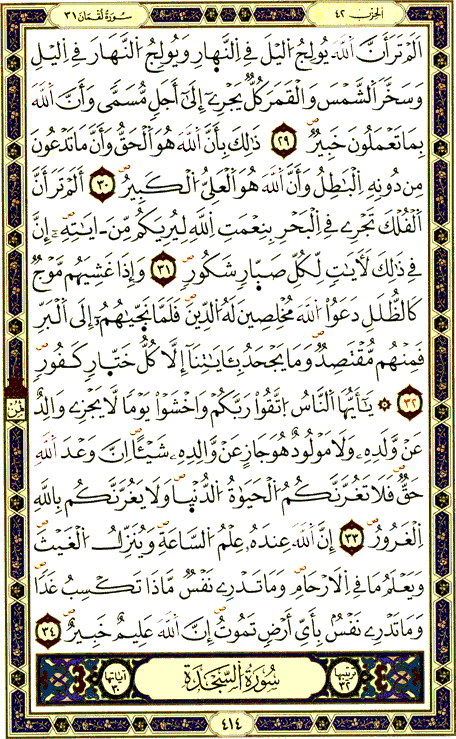 الحزب ٤٢
سورة لقمان ٣١
أَلَمْ تَرَ أَنَّ اَللَّهَ يُولِجُ اُليْلَ فِے اِلنَّهارِ وَيُولِجُ اُلنَّهَارَ فِے اِليْلِ
وَسَخَّرَ اَلشَّمْسَ وَالْقَمَرَ كُلٌّ يَجْرِے إِلَىٰٓ أَجَلٍ مُّسَمًّى وَأَنَّ اَللَّهَ
بِمَا تَعْمَلُونَ خَبِيرٌ ٢٩ ذَٰلِكَ بِأَنَّ اَللَّهَ هُوَ اَلْحَقُّ وَأَنَّ مَا تَدْعُونَ
مِن دُونِهِ اِلْبَٰطِلُ وَأَنَّ اَللَّهَ هُوَ اَلْعَلِيُّ اُلْكَبِيرُ ٣٠ أَلَمْ تَرَ أَنَّ
اَلْفُلْكَ تَجْرِے فِے اِلْبَحْرِ بِنِعْمَتِ اِللَّهِ لِيُرِيَكُم مِّنَ ـايَٰتِهِۦٓ إِنَّ
فِے ذَٰلِكَ لَأٓيَٰتٍ لِّكُلِّ صَبّارٍ شَكُورٍ ٣١ وَإِذَا غَشِيَهُم مَّوْجٌ
كَالظُّلَلِ دَعَوُاْ اُللَّهَ مُخْلِصِينَ لَهُ اُلدِّينَ فَلَمَّا نَجّٜيٰهُمُۥٓ إِلَى اَلْبَرِّ
فَمِنْهُم مُّقْتَصِدٌ وَمَا يَجْحَدُ بِـَٔايَٰتِنَآ إِلَّا كُلُّ خَتّارٍ كَفُورٍ
٣٢ ۞ يَٰٓأَيُّهَا اَلنَّاسُ اُتَّقُواْ رَبَّكُمْ وَاخْشَوْاْ يَوْمًا لَّا يَجْزِے وَالِدٌ
عَنْ وَّلَدِهِۦ وَلَا مَوْلُودٌ هُوَ جَازٍ عَنْ وَّالِدِهِۦ شَيْـًٔا اِنَّ وَعْدَ اَللَّهِ
حَقٌّ فَلَا تَغُرَّنَّكُمُ اُلْحَيَوٰةُ اُلدُّنْيٜا وَلَا يَغُرَّنَّكُم بِاللَّهِ
اِلْغَرُورُ ٣٣ إِنَّ اَللَّهَ عِندَهُۥ عِلْمُ اُلسَّاعَةِ وَيُنَزِّلُ اُلْغَيْثَ
وَيَعْلَمُ مَا فِے اِلَارْحَامِ وَمَا تَدْرِے نَفْسٌ مَّاذَا تَكْسِبُ غَدًا
وَمَا تَدْرِے نَفْسُۢ بِأَيِّ أَرْضٍ تَمُوتُ إِنَّ اَللَّهَ عَلِيمٌ خَبِيرٌ ٣٤
ثمن
ترتيبها ٣٢
سُورَةُ السَّجْدَةِ
آياتها ٣٠
٤١٤